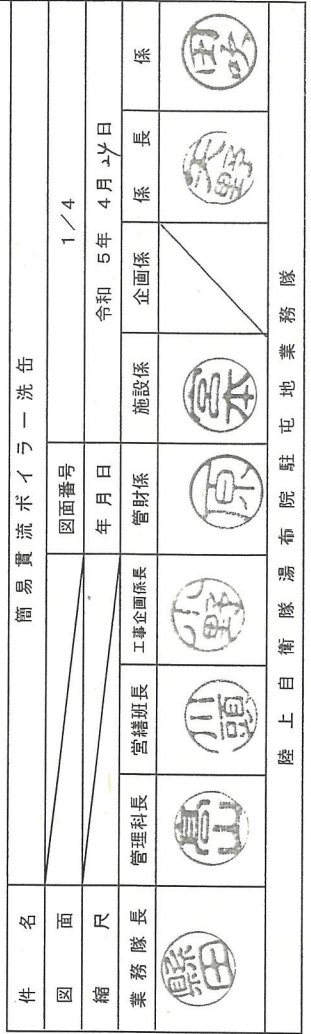 件名 簡易貫流ボイラー洗缶
図面 図面番号 1/4
縮尺 年月日 令和 5年 4月 24日
業務隊長 管理科長 営繕班長 工事企画係長 管財係 施設係 企画係 係長 係
川頭 原 宮本
陸上自衛隊湯布院駐屯地業務隊